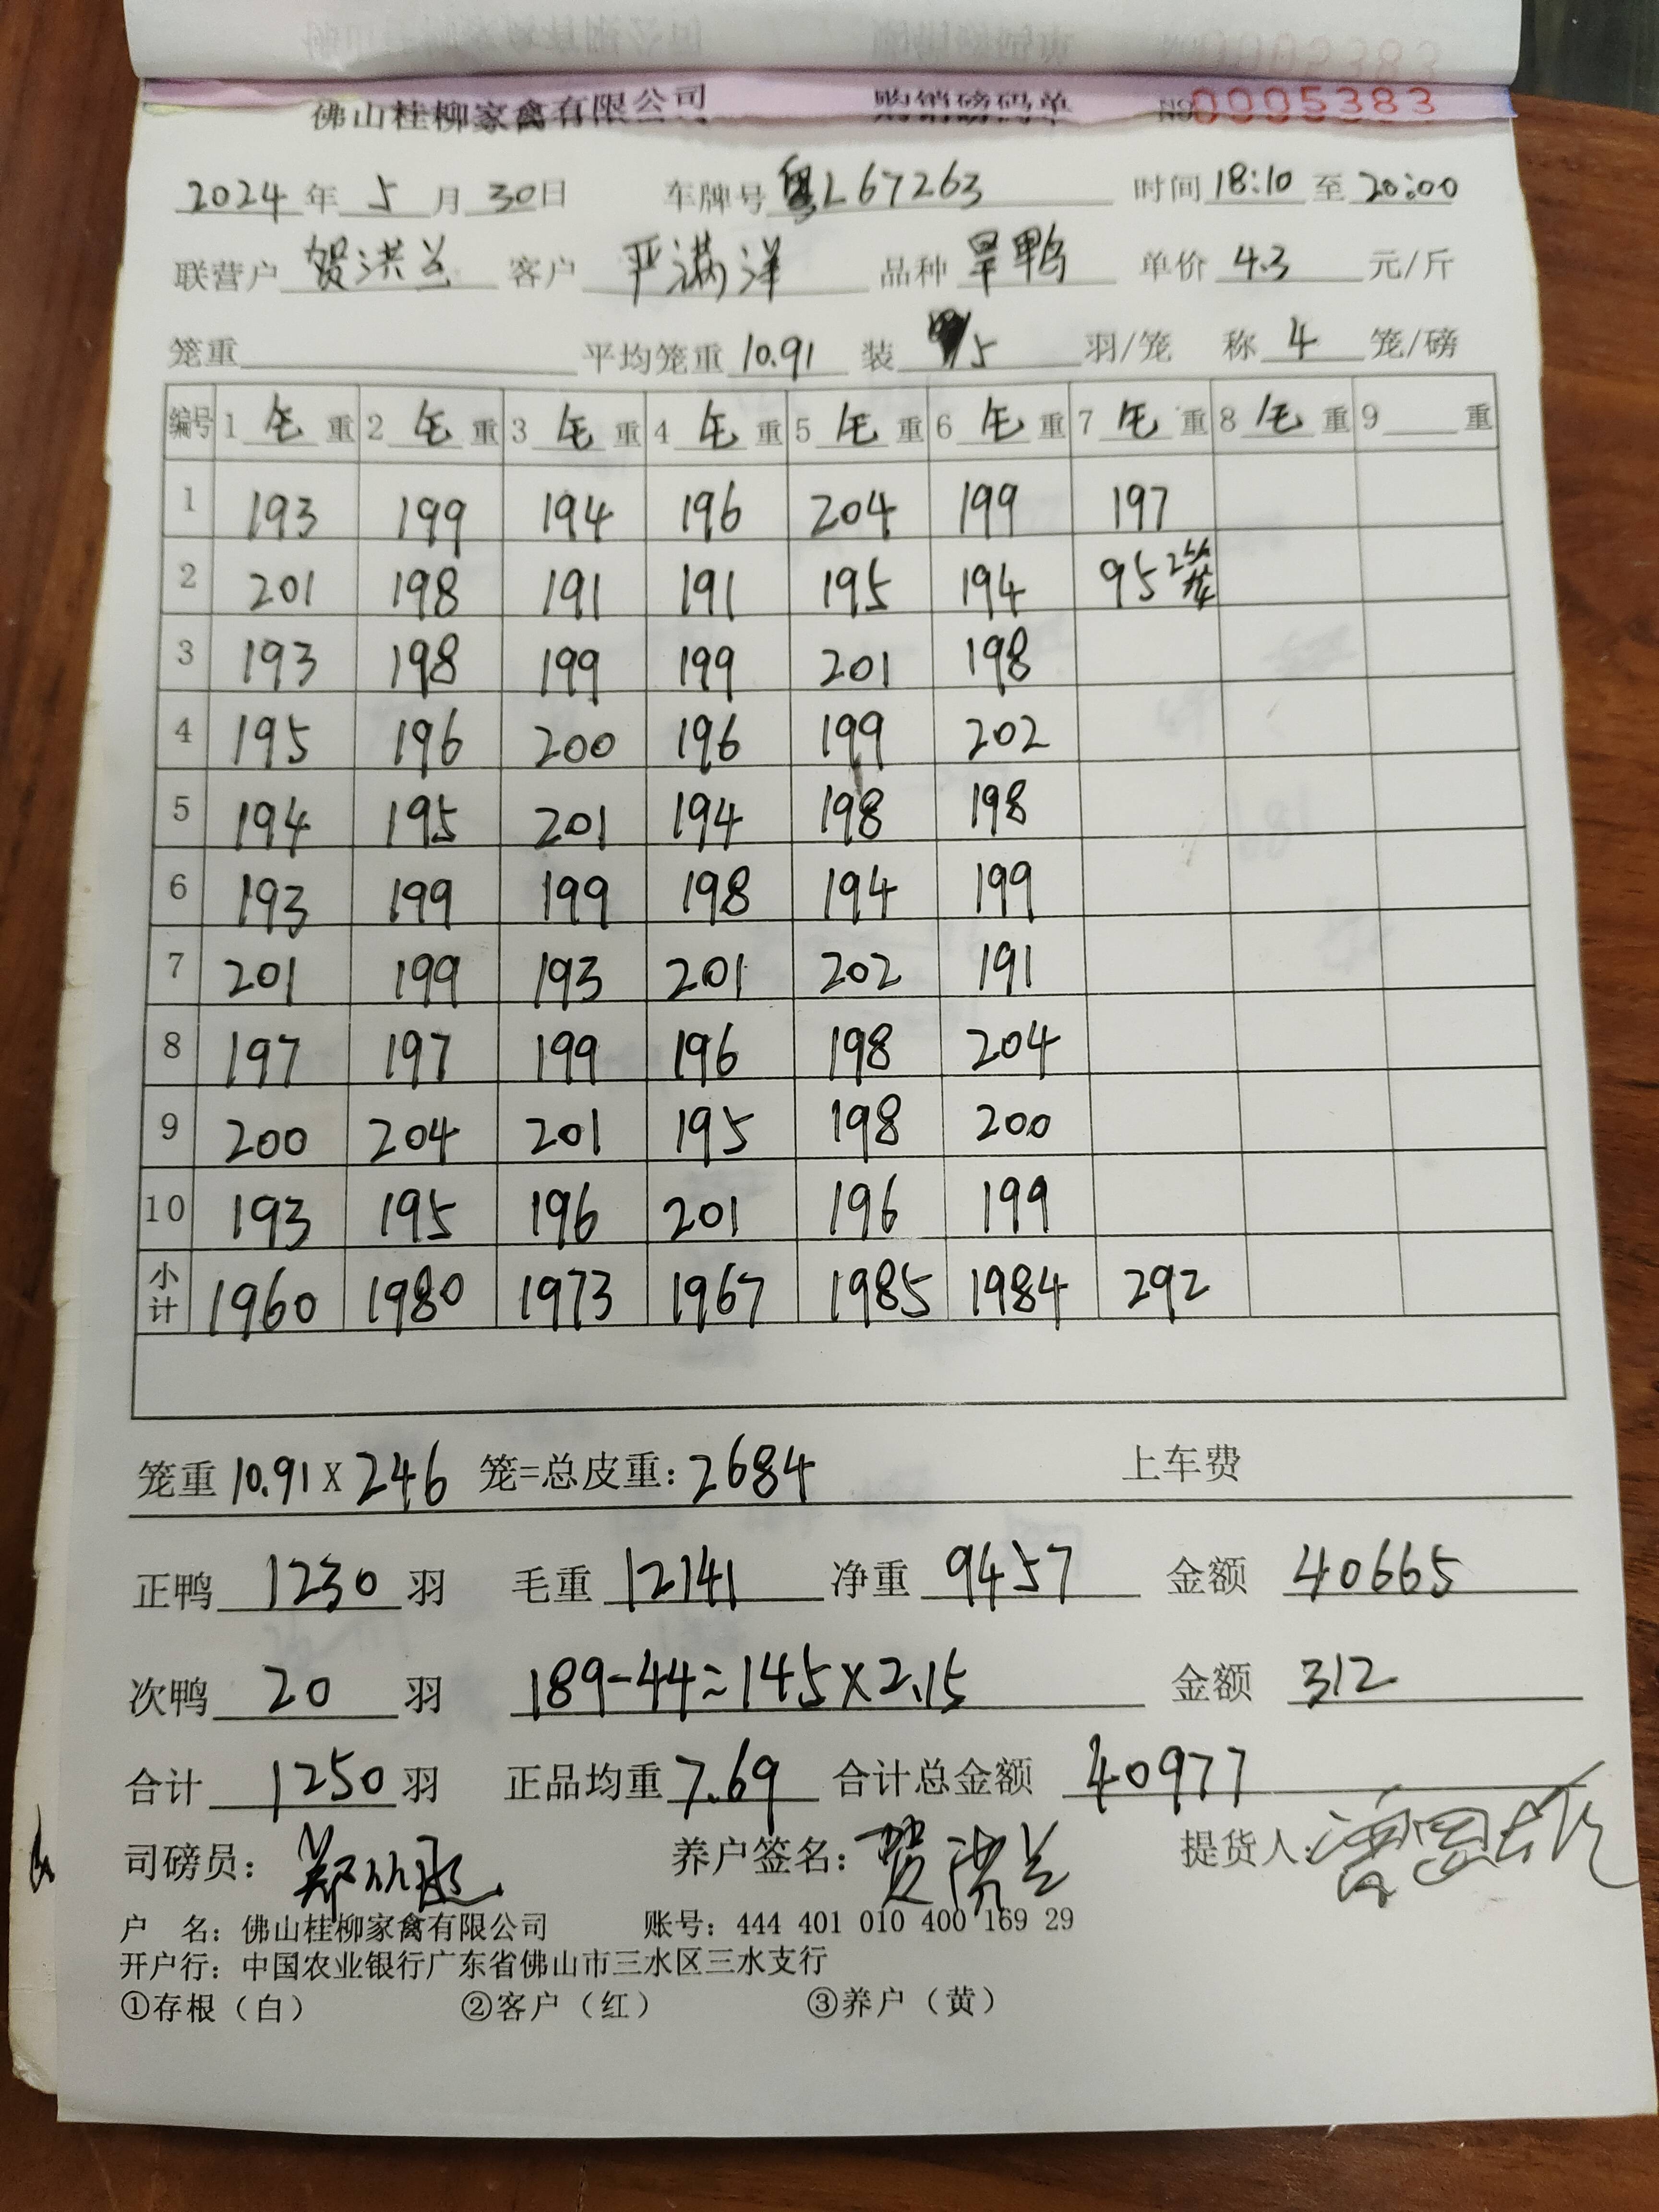 佛山桂柳家禽有限公司 购销磅码单 NO 0005383
2024年 5 月 30日 车牌号 粤L67263 时间 18:10 至 20:00
联营户 贺洪兰 客户 严满洋 品种 旱鸭 单价 4.3 元/斤
笼重 平均笼重 10.91 装 5 羽/笼 称 4 笼/磅
编号 1 毛 重 2 毛 重 3 毛 重 4 毛 重 5 毛 重 6 毛 重 7 毛 重 8 毛 重 9 重
1 193 199 194 196 204 199 197
2 201 198 191 191 195 194 95 2笼
3 193 198 199 199 201 198
4 195 196 200 196 199 202
5 194 195 201 194 198 198
6 193 199 199 198 194 199
7 201 199 193 201 202 191
8 197 197 199 196 198 204
9 200 204 201 195 198 200
10 193 195 196 201 196 199
小计 1960 1980 1973 1967 1985 1984 292
笼重 10.91 X 246 笼=总皮重: 2684 上车费
正鸭 1230 羽 毛重 12141 净重 9457 金额 40665
次鸭 20 羽 189-44=145×2.15 金额 312
合计 1250 羽 正品均重 7.69 合计总金额 40977
司磅员: 养户签名: 贺洪兰 提货人:
户 名: 佛山桂柳家禽有限公司 账号: 444 401 010 400 169 29
开户行: 中国农业银行广东省佛山市三水区三水支行
①存根（白） ②客户（红） ③养户（黄）